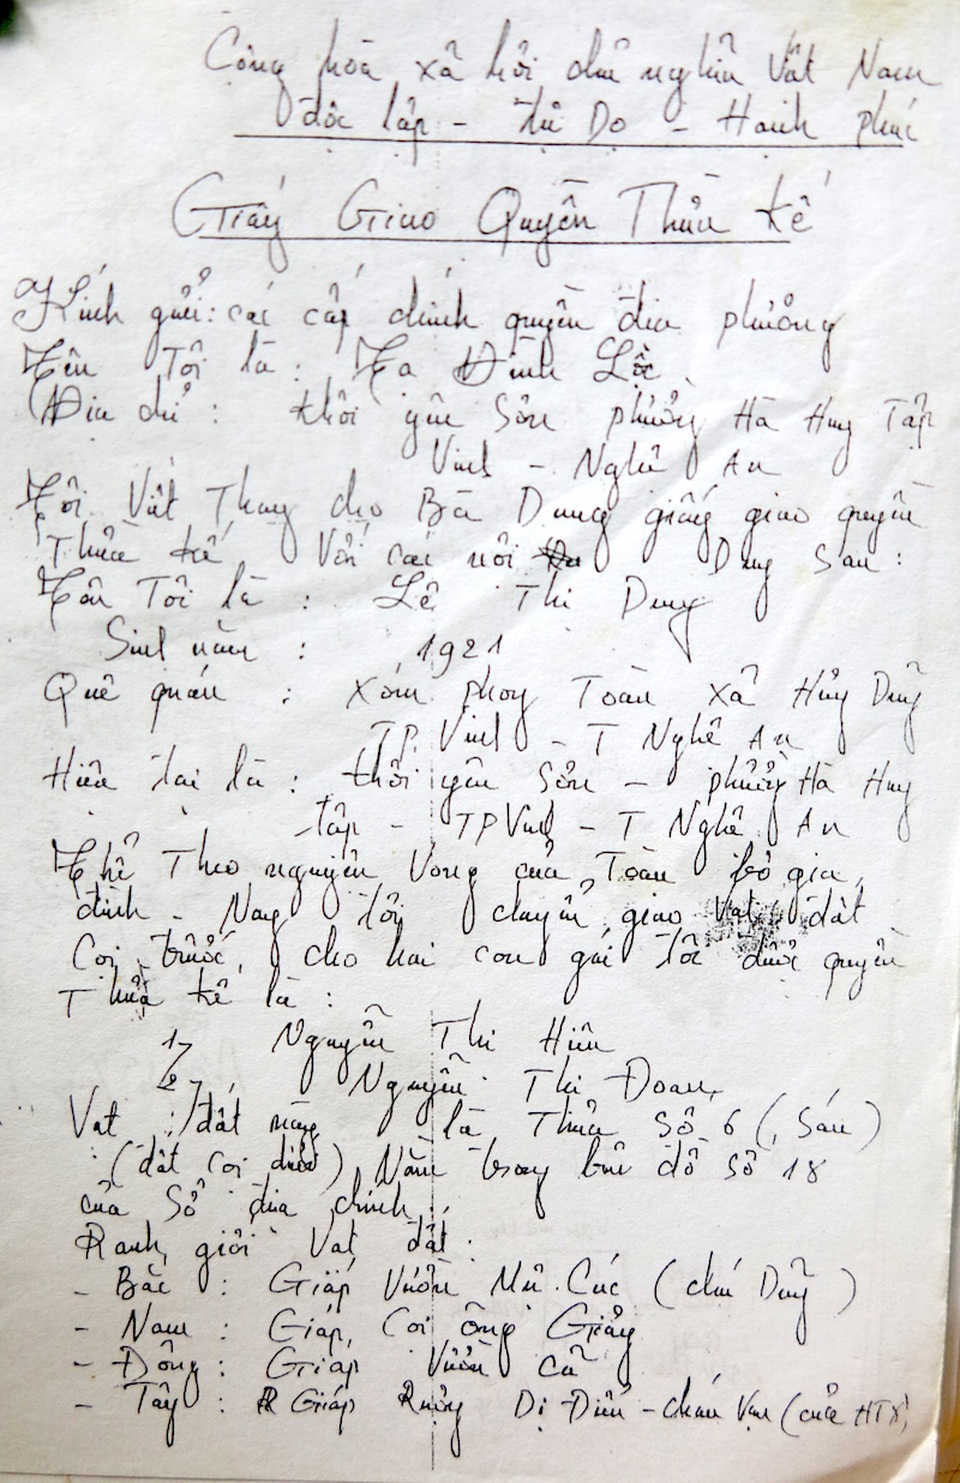 Cộng hòa xã hội chủ nghĩa Việt Nam
độc lập - tự Do - Hạnh phúc
Giấy Giao Quyền Thừa kế
Kính gửi: các cấp chính quyền địa phường
Tên Tôi là : Tạ Đình Lộc
Địa chỉ : khối yên Sơn phường Hà Huy Tập
Vinh - Nghệ An
Tôi Viết Thay cho Bà Dung giấy giao quyền
Thừa kế Với các nội Dung Sau :
Tên Tôi là : Lê Thị Dung
Sinh năm : 1921
Quê quán : Xóm phong Toàn xã Hưng Dũng
TP. Vinh - T Nghệ An
Hiện tại là : khối yên Sơn - phường Hà Huy
Tập - TP Vinh - T Nghệ An
Thể Theo nguyện Vọng của Toàn bộ gia
đình - Nay tôi chuyển giao Vạt đất
Coi trước, cho hai con gái tôi được quyền
Thừa kế là :
1, Nguyễn Thị Hiên
2, Nguyễn Thị Đoan
Vạt đất này là Thửa Số 6 (Sáu)
(đất coi ) Nằm trong bản đồ số 18
của Sổ địa chính
Ranh giới Vạt đất :
- Bắc : Giáp Vườn Mụ Cúc (chú Dũng)
- Nam : Giáp, Coi ông Giảng
- Đông : Giáp Vườn cũ
- Tây : Giáp Ruộng Dị Điểu - cháu Vạn (của HTX)